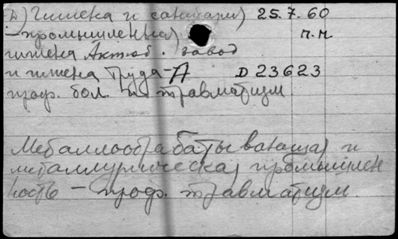 Б) Гигиена и санитария 25.7.60
промышленная п.м
гигиена Актоб. завод
гигиена труда-А D 23623
проф. бол. и травматизм
Металлообрабатывающая и
металлургическая промышлен
ность – проф. травматизм.